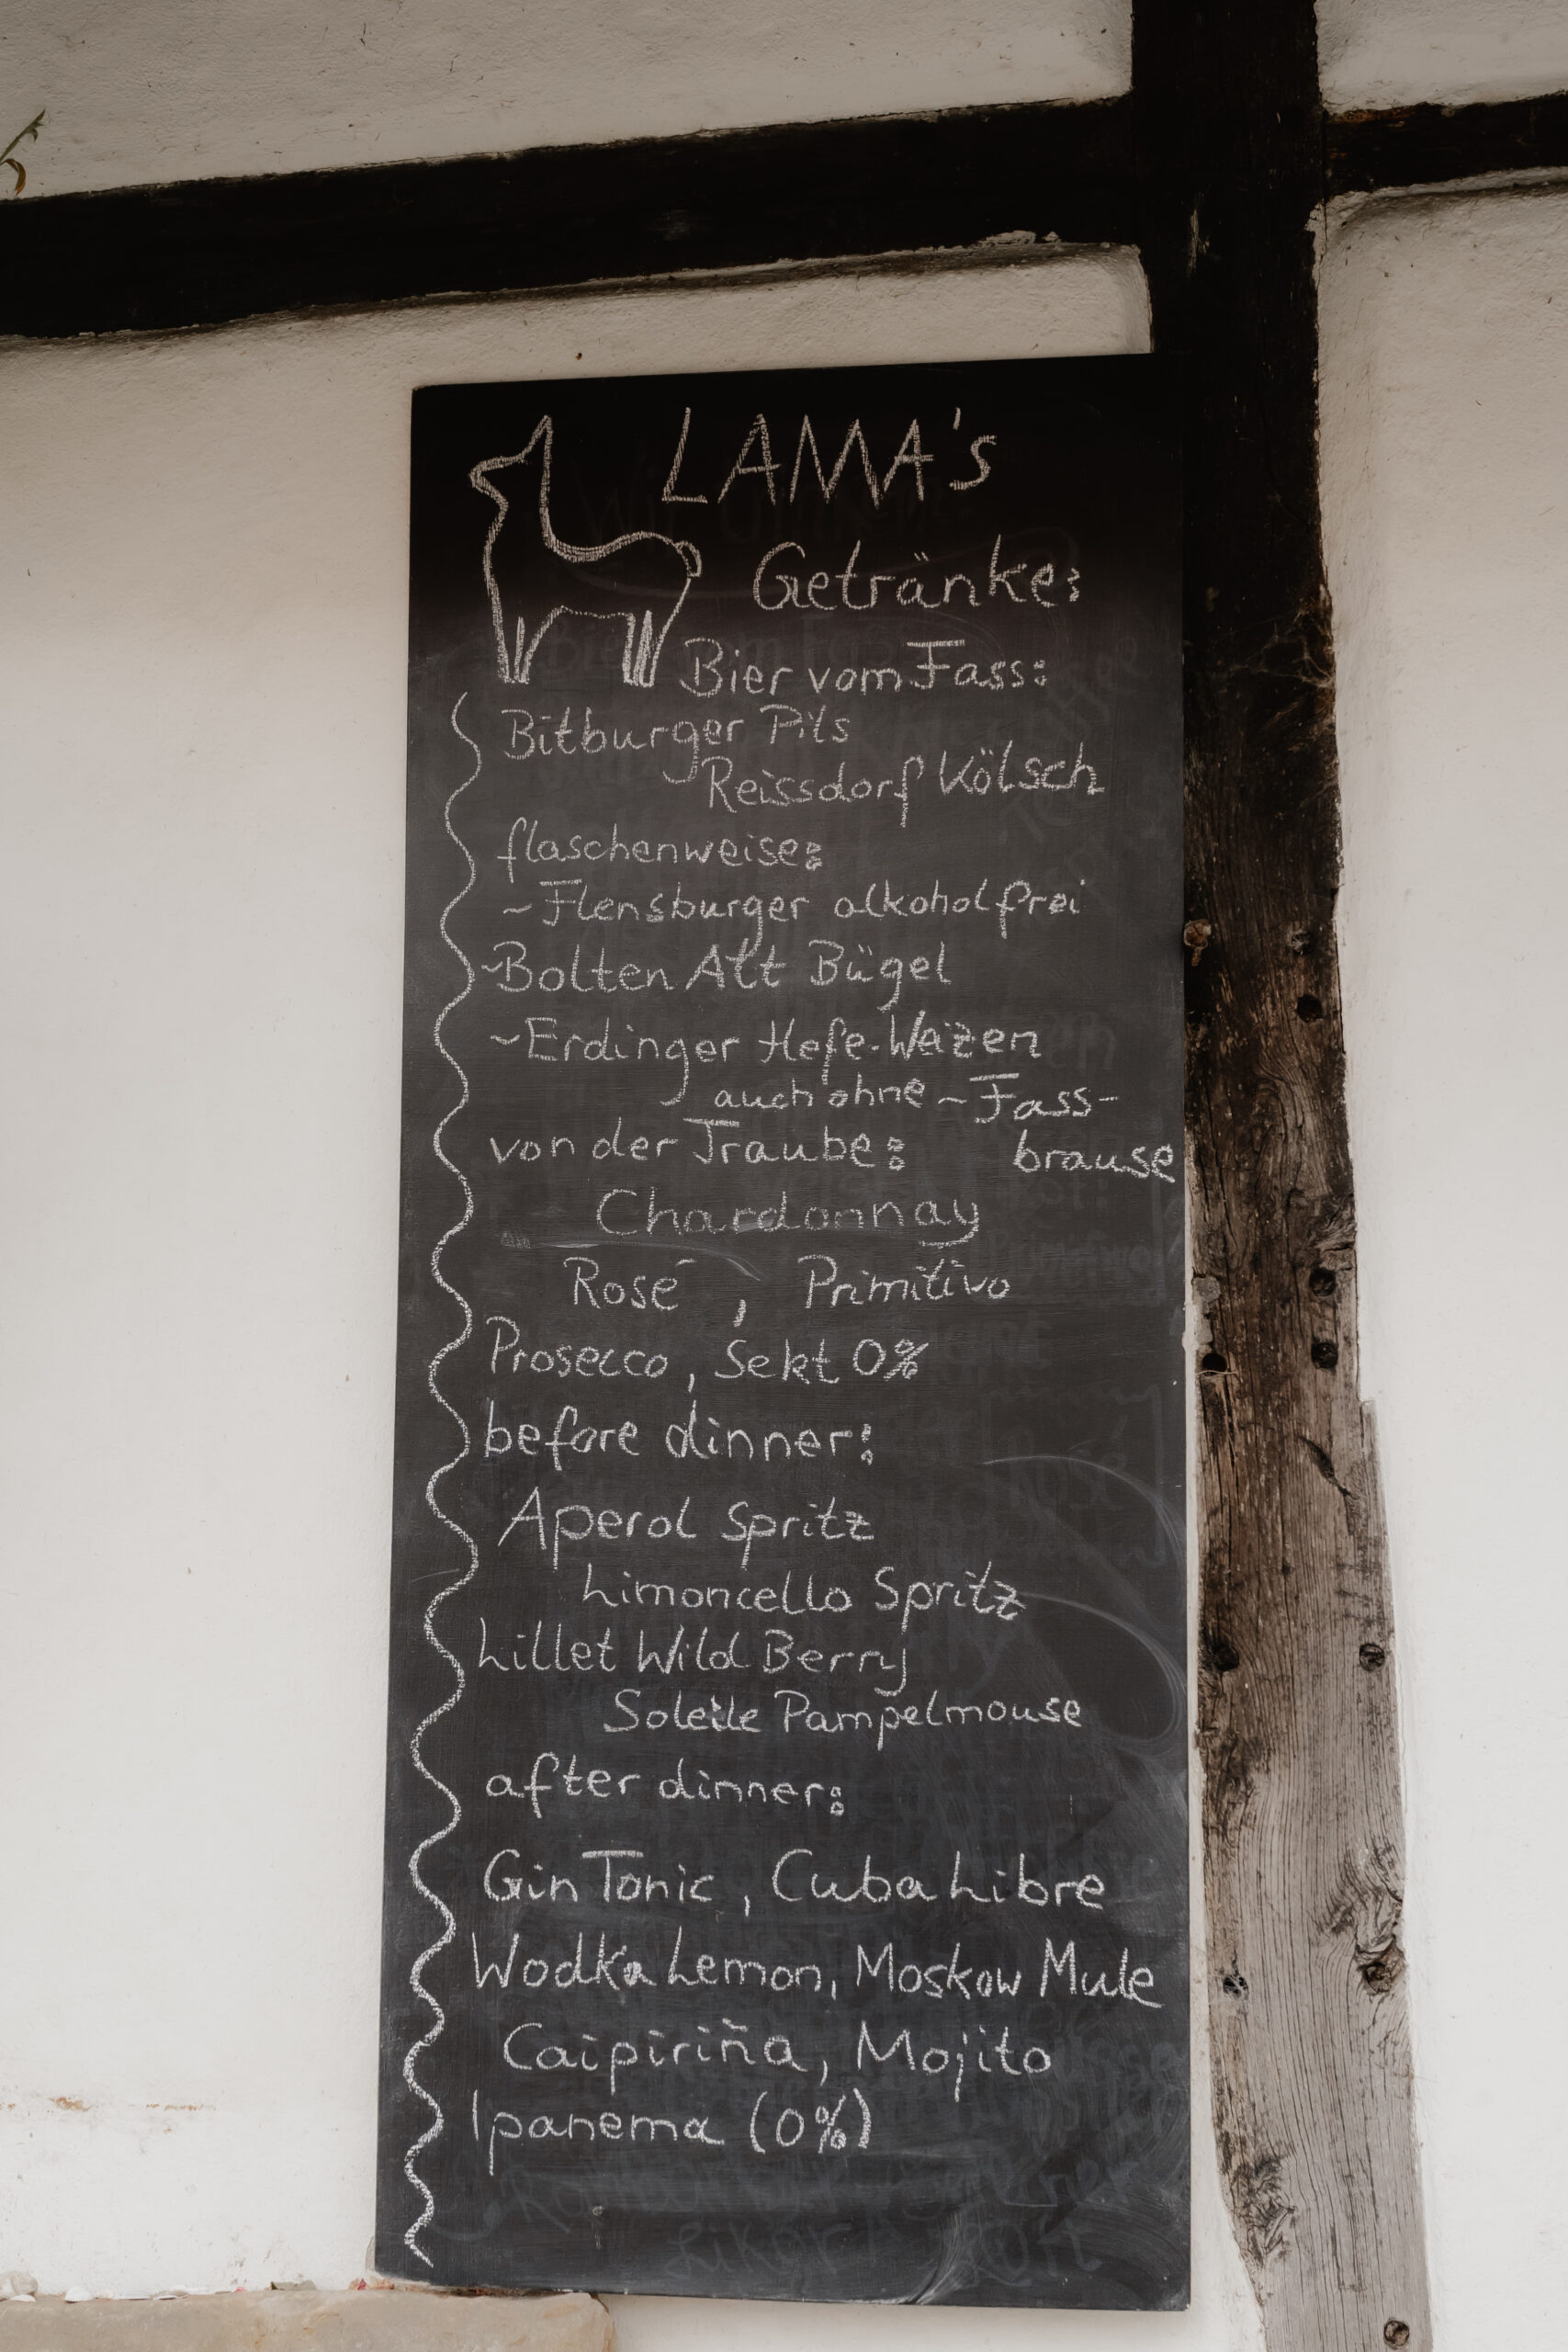 LAMA's
Getränke:
Bier vom Fass:
Bitburger Pils
Reissdorf Kölsch
flaschenweise:
~Flensburger alkoholfrei
~Bolten Alt Bügel
~Erdinger Hefe-Weizen
auch ohne ~Fass-
brause
von der Traube:
Chardonnay
Rosé , Primitivo
Prosecco, Sekt 0%
before dinner:
Aperol Spritz
Limoncello Spritz
Lillet Wild Berry
Soleile Pampelmouse
after dinner:
Gin Tonic, Cuba Libre
Wodka Lemon, Moskow Mule
Caipiriña, Mojito
Ipanema (0%)